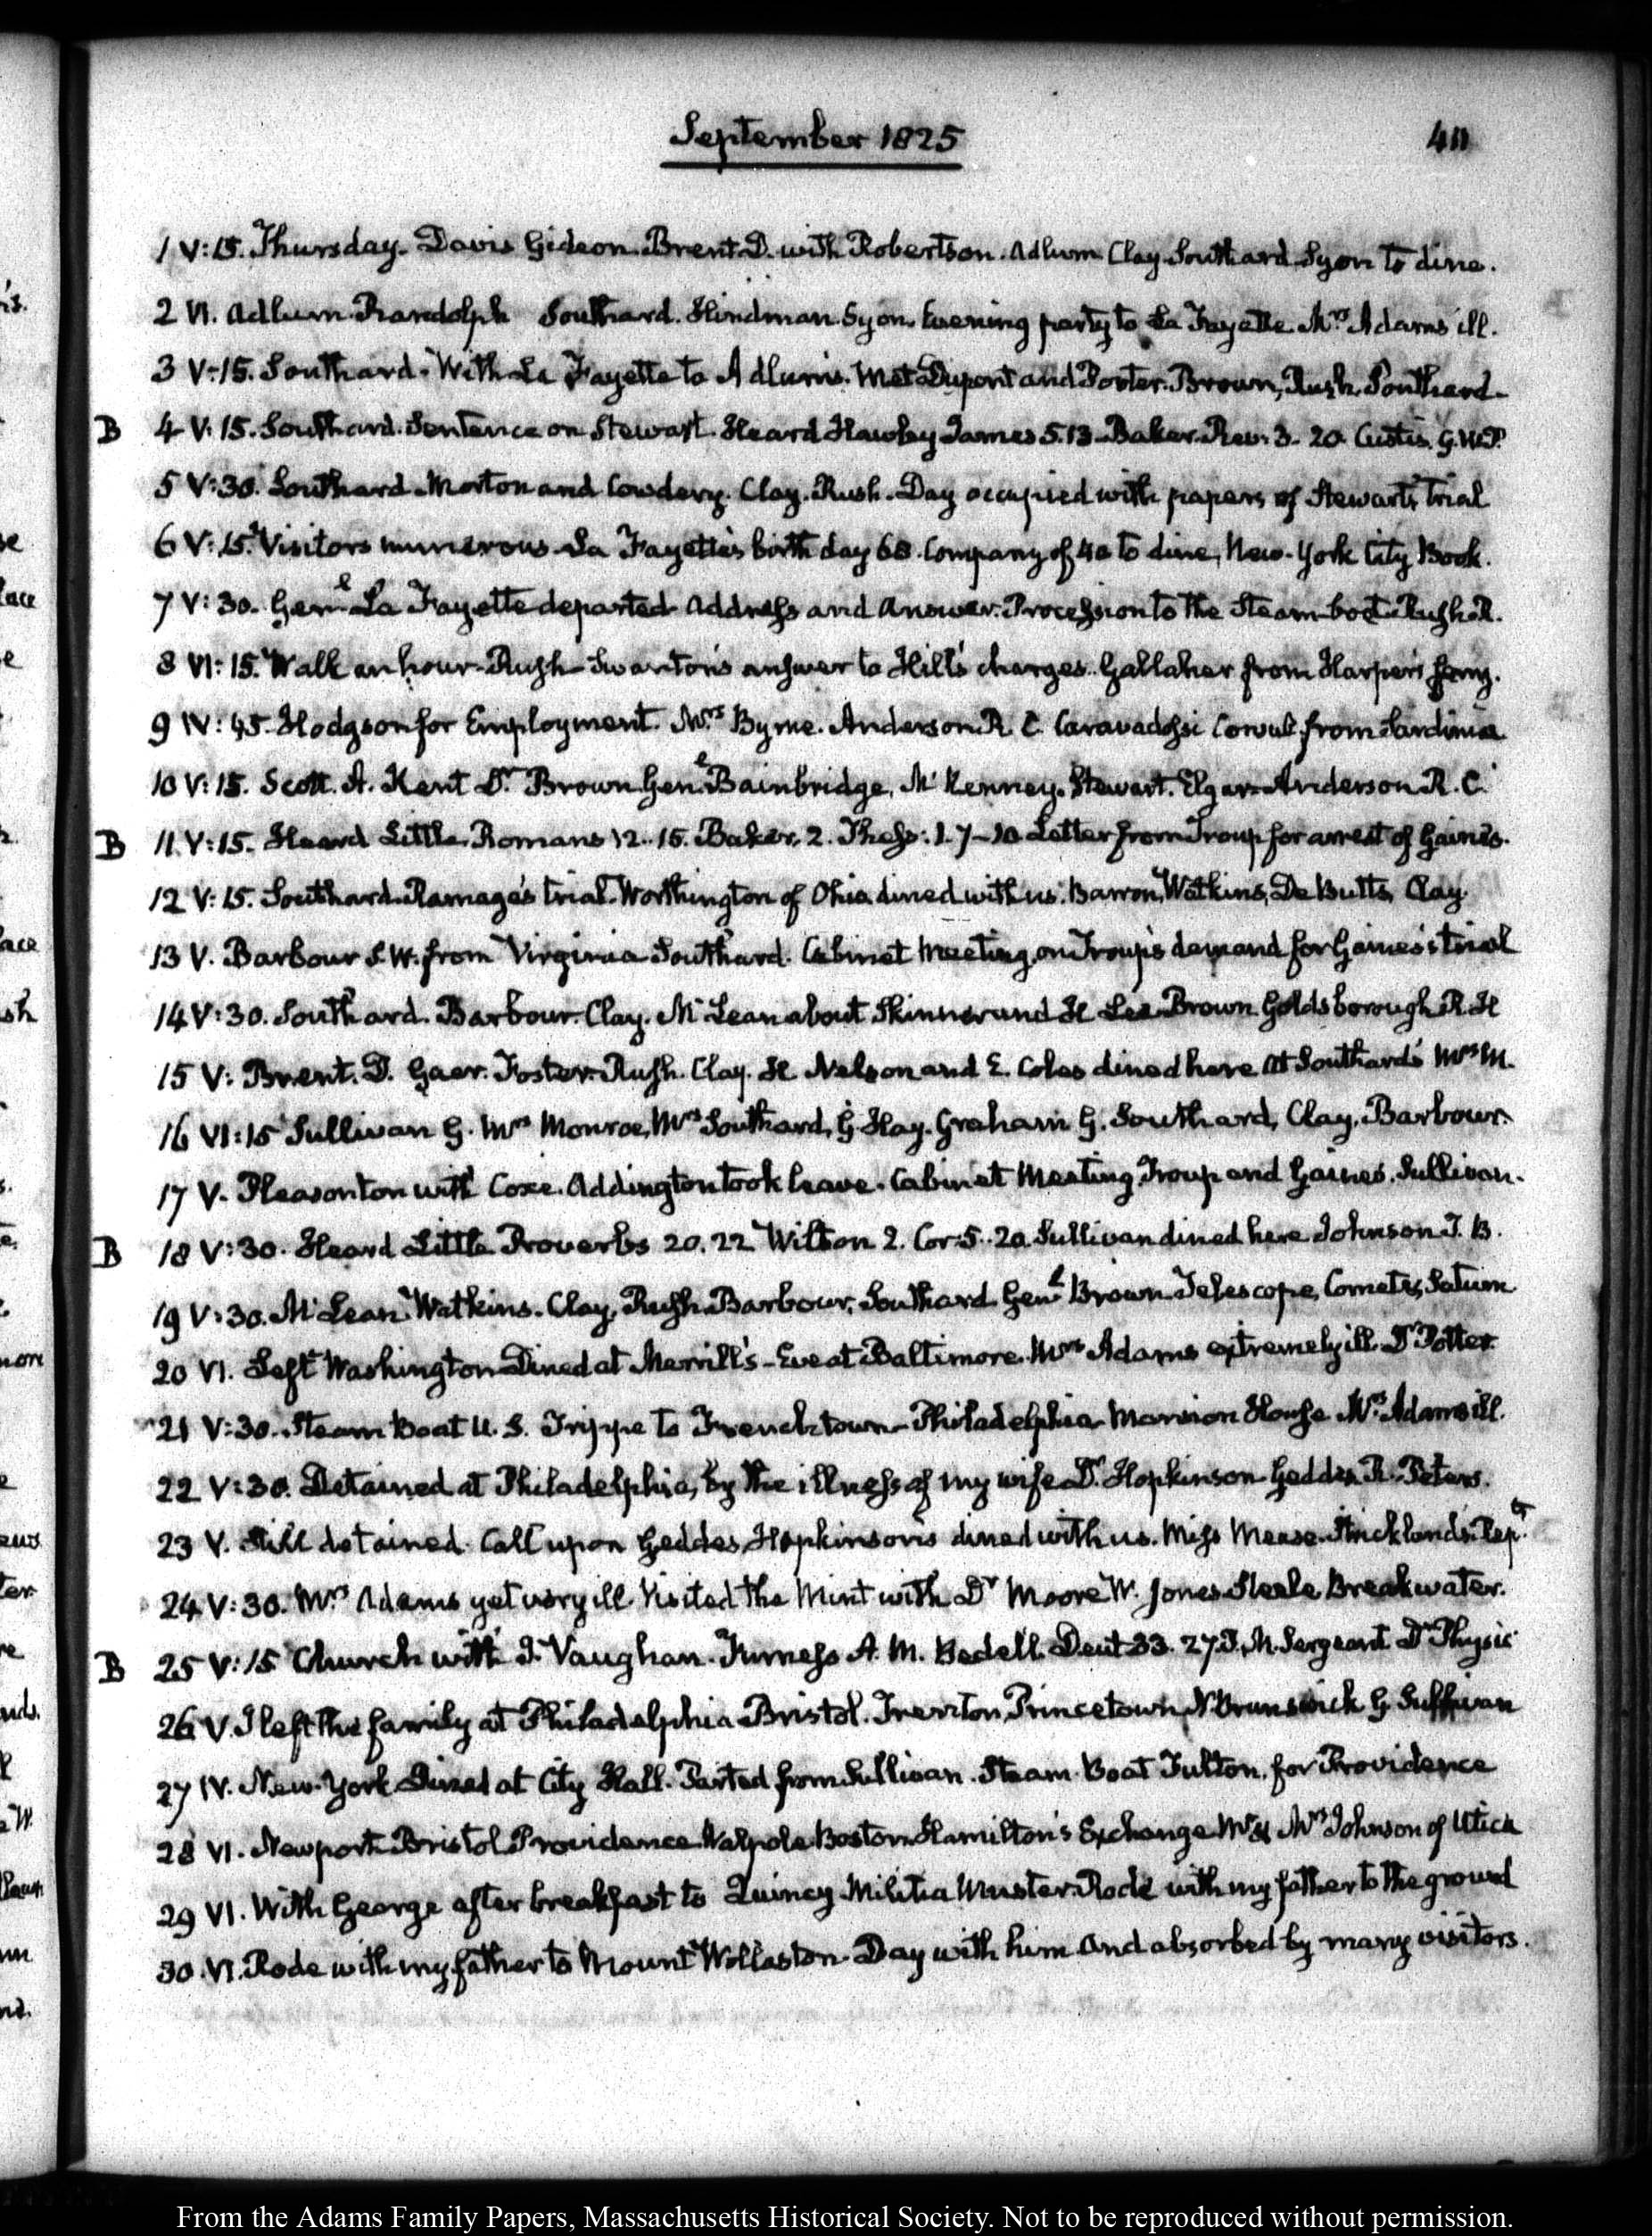 September 1825
411
1 V:15. Thursday. Davis Gideon. Brent D. with Robertson. Adlum Clay Southard Syon to dine.
2 VI. Adlum. Randolph Southard. Hindman. Syon. Evening party to La Fayette Mrs Adams ill.
3 V:15. Southard. With La Fayette to Adlum's. Met Dupont and Foster. Brown, Rush. Southard.
B 4 V:15. Southard. Sentence on Stewart. Heard Hawley James 5.13 Baker. Rev: 3. 20. Custis. G.W.P.
5 V:30. Southard. Morton and Cowdery. Clay. Rush. Day occupied with papers of Stewart's trial
6 V:15. Visitors numerous La Fayette's birth day 68. Company of 40 to dine, New-York City Book.
7 V:30. Genl La Fayette departed Address and Answer. Procession to the Steam-boat. Rush R.
8 VI:15. Walk an hour. Rush Swanton's answer to Hill's charges. Gallaher from Harper's ferry.
9 IV:45. Hodgson for Employment. Mrs Byrne. Anderson R. C. Caravadossi Consul from Sardinia
10 V:15. Scott. A. Kent Dr Brown Genl Bainbridge, McKenney. Stewart. Elgar. Anderson R. C.
B 11 V:15. Heard Little. Romans 12. 15. Baker. 2. Thess: 1. 7-10 Letter from Troup for arrest of Gaines.
12 V:15. Southard. Ramage's trial. Worthington of Ohio dined with us. Barron, Watkins, De Butts, Clay.
13 V. Barbour S.W. from Virginia Southard. Cabinet Meeting, on Troup's demand for Gaines's trial
14 V:30. Southard. Barbour. Clay. McLean about Skinner and H Lee. Brown Goldsborough R. H
15 V: Brent. D. Foster. Rush. Clay. H Nelson and E. Coles dined here at Southard's Mrs M.
16 VI:15 Sullivan G. Mrs Monroe, Mrs Southard, G. Hay. Graham G. Southard, Clay, Barbour.
17 V. Pleasonton with Coxe. Addington took leave. Cabinet Meeting. Troup and Gaines. Sullivan.
B 18 V:30. Heard Little Proverbs 20. 22 Wilson 2. Cor: 5. 20. Sullivan dined here Johnson J. B.
19 V:30. McLean Watkins. Clay, Rush. Barbour, Southard. Genl Brown Telescope, Comets, Saturn
20 VI. Left Washington Dined at Merrill's - Eve at Baltimore. Mrs Adams extremely ill. Dr Potter.
21 V:30. Steam Boat U. S. Trippe to Frenchtown Philadelphia Mansion House Mrs Adams ill.
22 V:30. Detained at Philadelphia, by the illness of my wife Dr. Hopkinson Geddes R. Peters.
23 V. Still detained. Call upon Geddes, Hopkinson's dined with us. Miss Mease. Strickland's Rept
24 V:30. Mrs Adams yet very ill. Visited the Mint with Dr Moore W. Jones Steele Breakwater.
B 25 V:15 Church with J. Vaughan. Furness A. M. Bedell. Deut 33. 27. Sergeant Dr Physic
26 V. I left the family at Philadelphia Bristol. Trenton, Princetown, N Brunswick G. Sullivan
27 IV. New-York Dined at City Hall. Parted from Sullivan. Steam Boat Fulton, for Providence
28 VI. Newport Bristol Providence Walpole Boston Hamilton's Exchange Mr & Mrs Johnson of Utica
29 VI. With George after breakfast to Quincy Militia Muster. Rode with my father to the ground
30. VI. Rode with my father to Mount Wollaston. Day with him and absorbed by many visitors.
From the Adams Family Papers, Massachusetts Historical Society. Not to be reproduced without permission.